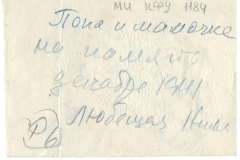 МИ КФУ 1184
Папа и мамочке
на память
декабрь 1941
Любящая Нина
Ф6